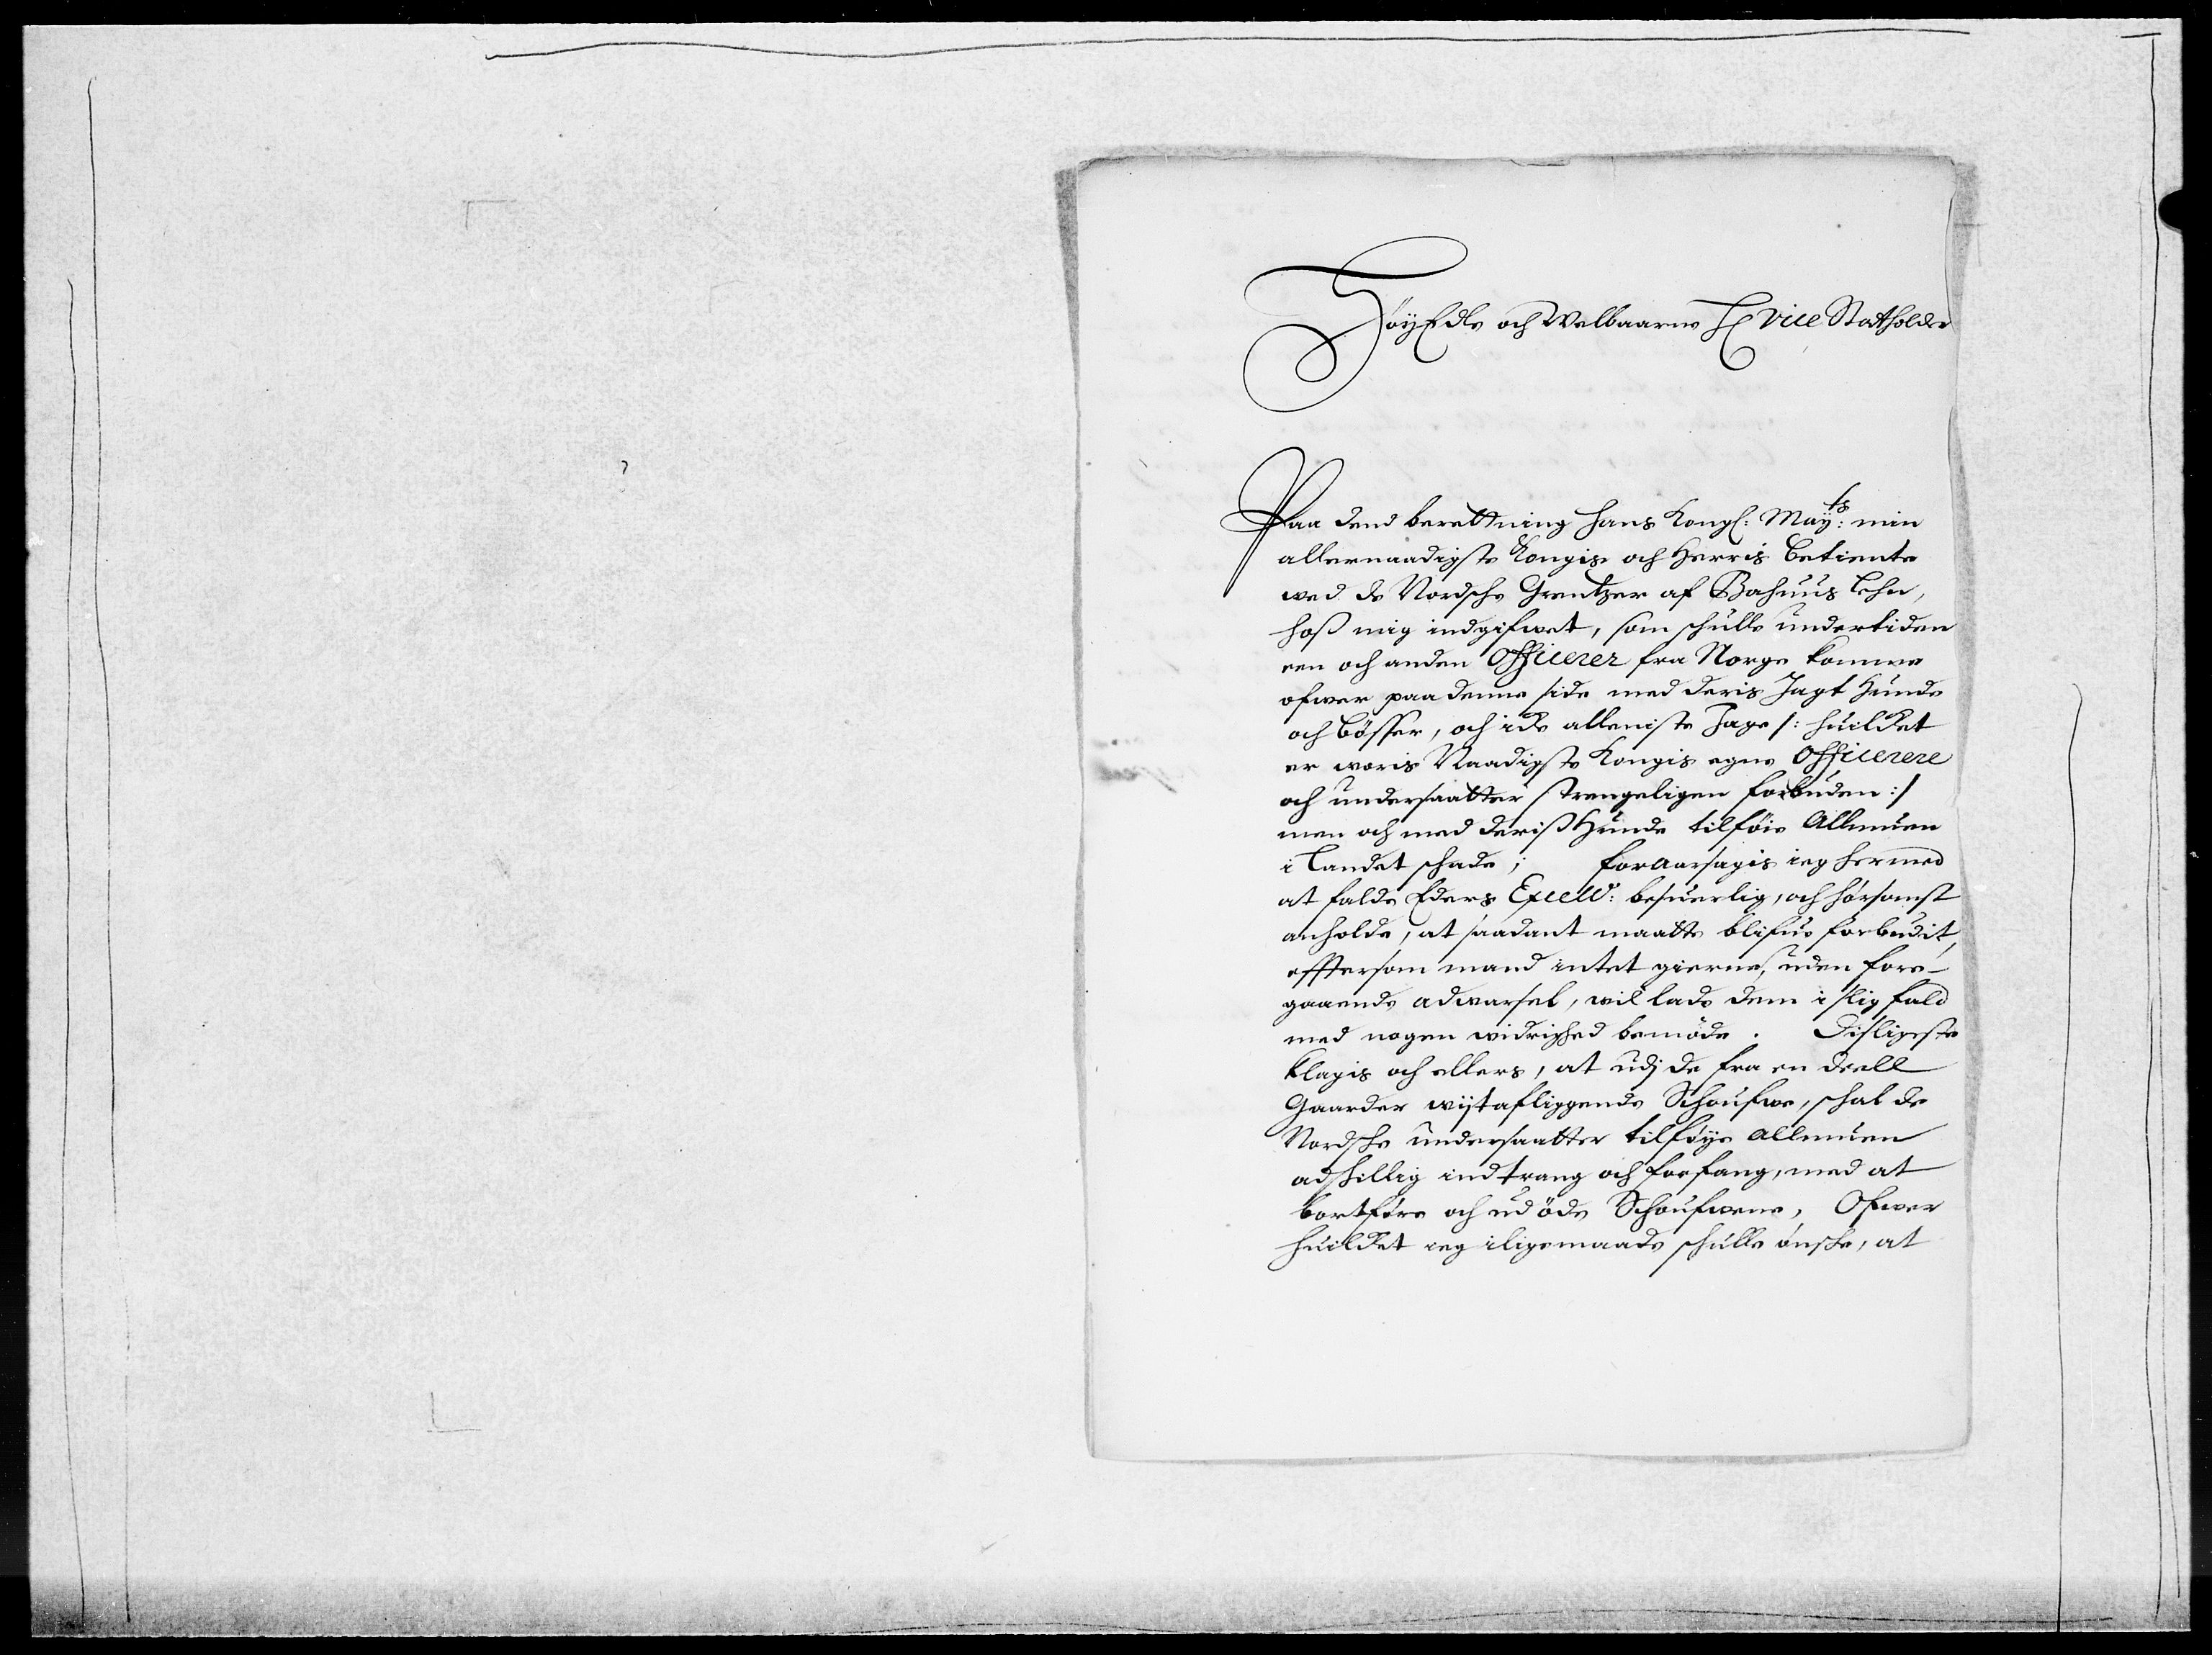 HöyEdle och Welbaarne H Vice Statholder
Paa dend berettning Hans Kongl: May:ts min
allernaadigste Kongis och Herris betiente
wed de Nordsche Grentzer af Bahuus Lehn,
hoss mig indgifwet, som schulle undertiden
een och anden Officerer fra Norge komme
ofwer paa denne side med deris Jagt Hunde
och Bösser, och icke alleniste Jage /: huilcket
er woris Naadigste Kongis egne Officerere
och undersaatter strengeligen forbuden :/
men och med deriss Hunde tilföie Allmuen
i Landet schade; foraarsagis ieg hermed
at falde Eders Excell: besuerlig, och hörsomst
anholde, at saadant maatte blifue forbudit,
efftersom mand intet gierne, uden fore-
gaaende adwarsel, wil lade dem i slig fald
med nogen widrighed bemöde. Disligeste
klagis och ellers, at udj de fra en deell
Gaarder wijt afliggende Schoufwe, schal de
Nordsche undersaatter tilföye allmuen
adskillig indtrang och forfang, med at
bortföre och udöde Schoufwene, Ofwer
huilcket ieg iligemaade schulle önsche, at